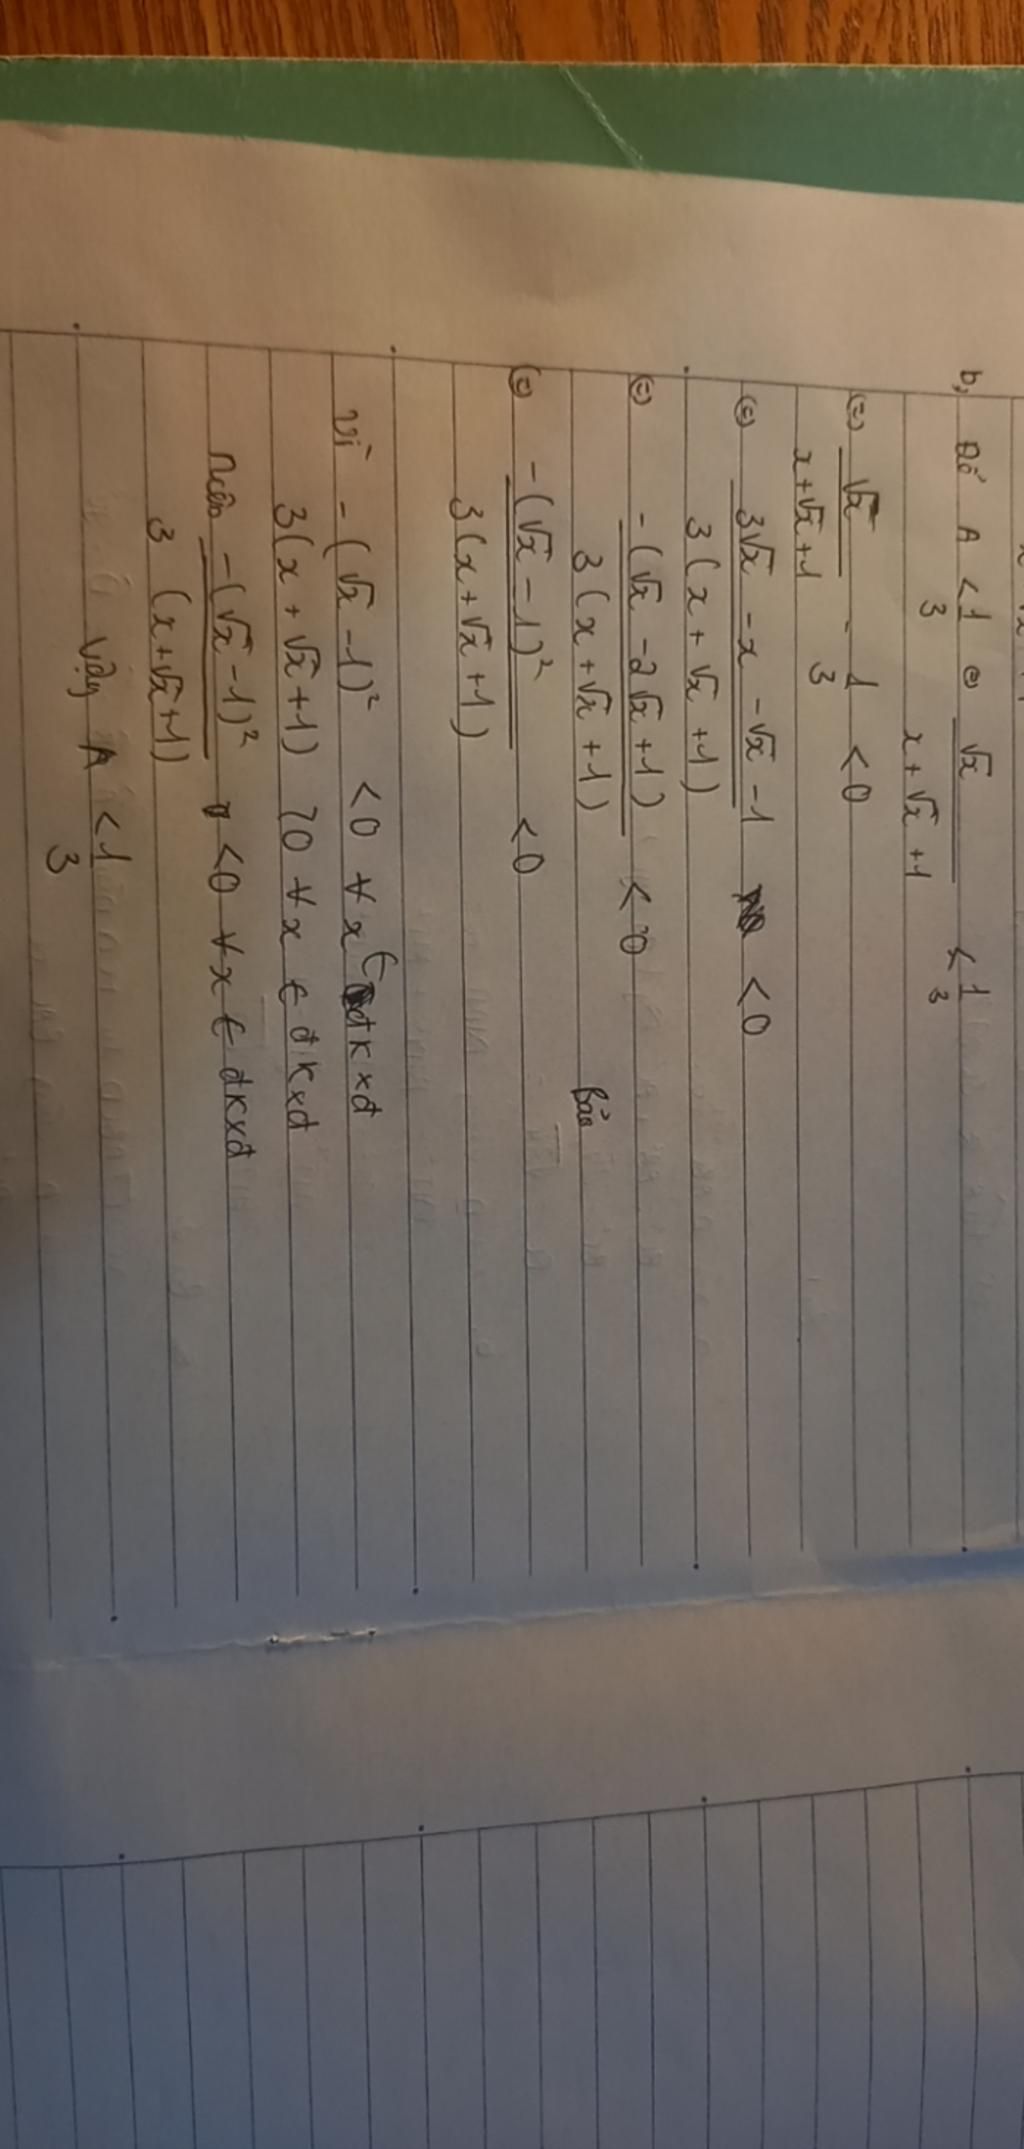 b, Để A < 1/3 ⇔ √x / (x + √x + 1) < 1/3
⇔ √x / (x + √x + 1) - 1/3 < 0
⇔ (3√x - x - √x - 1) / (3(x + √x + 1)) < 0
⇔ -(√x - 2√x + 1) / (3(x + √x + 1)) < 0
⇔ -(√x - 1)² / (3(x + √x + 1)) < 0
Vì -(√x - 1)² < 0 ∀ x ∈ đkxđ
3(x + √x + 1) > 0 ∀ x ∈ đkxđ
nên -(√x - 1)² / (3(x + √x + 1)) < 0 ∀ x ∈ đkxđ
Vậy A < 1/3